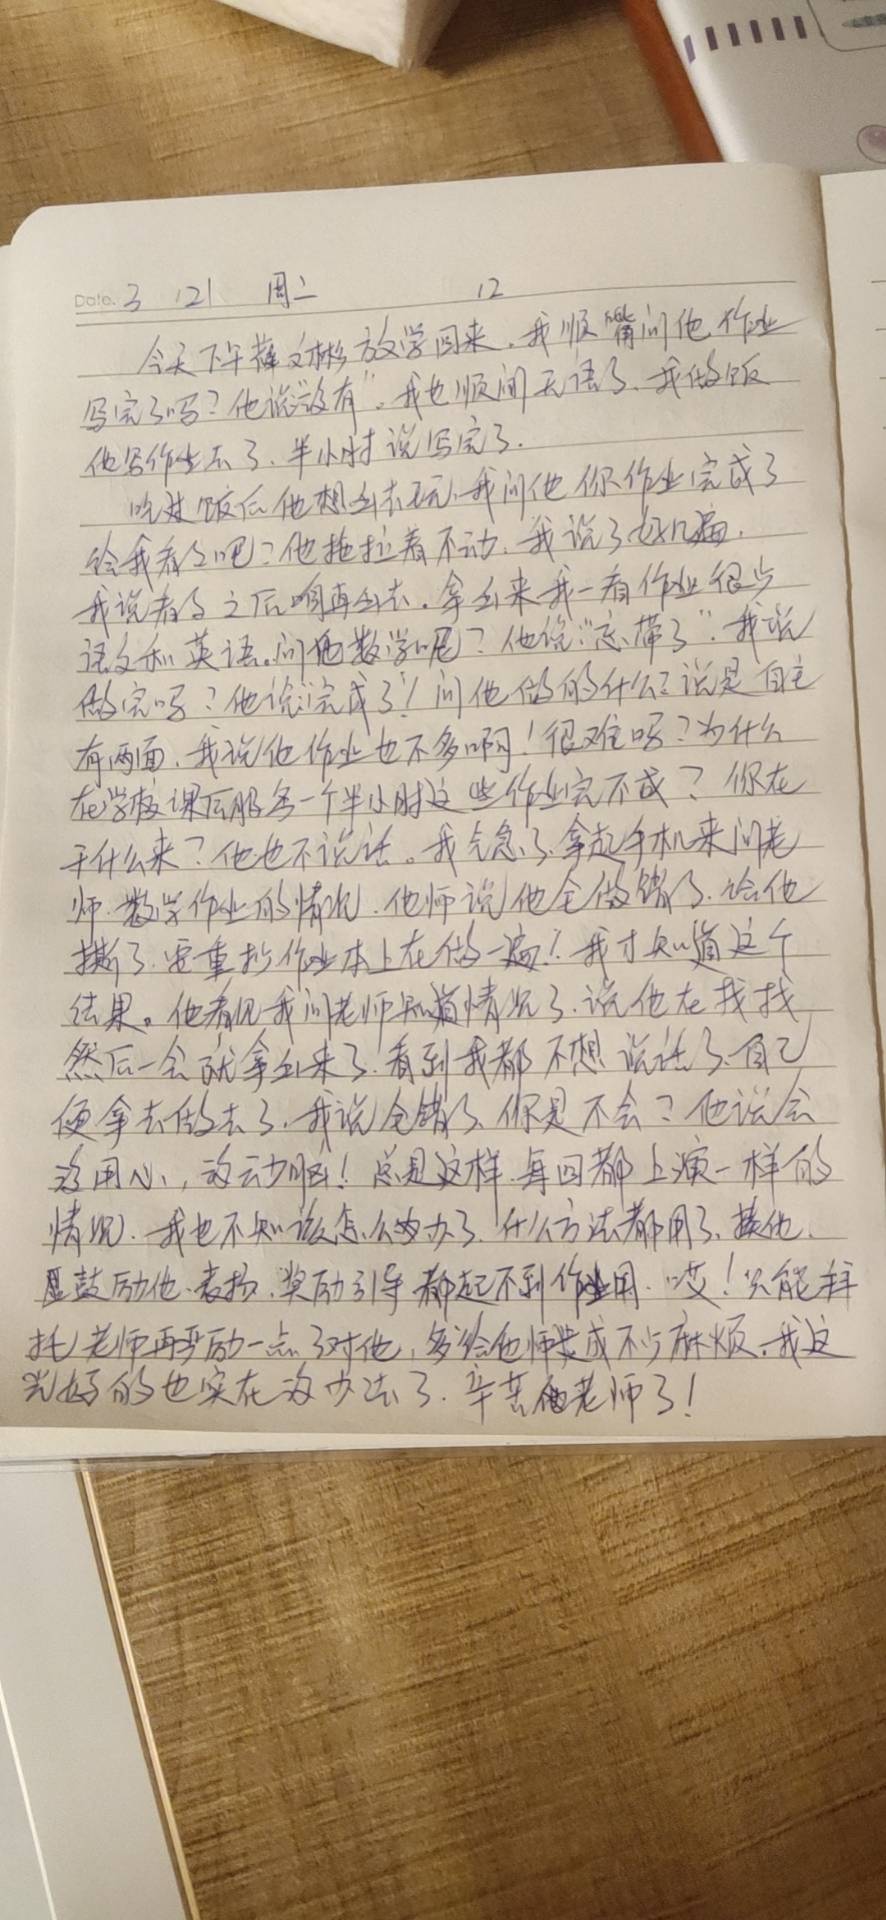 Date. 3 21 周二 12
今天下午薛文彬放学回来,我顺嘴问他作业
写完了吗?他说"没有"。我也顺间无语了,我做饭
他写作业去了,半小时说写完了.
吃过饭后他想出去玩,我问他你作业完成了
给我看了吧?他拖拉着不动,我说了好几遍.
我说看了之后咱再出去.拿出来我一看作业很少
语文和英语。问他数学呢?他说:"忘带了".我说
做完吗?他说"完成了"!问他做的什么?说是自主
有两面,我说他作业也不多啊!很难吗?为什么
在学校课后服务一个半小时这些作业完不成?你在
干什么来?他也不说话。我气急了,拿起手机来问老
师.数学作业的情况.他师说他全做错了.给他
撕了.要重抄作业本上在做一遍!我才知道这个
结果。他看见我问老师知道情况了.说他在找找
然后一会就拿出来了.看到我都不想说话了.自己
便拿去做去了.我说全错了、你是不会?他说会
没用心,没动脑!总是这样.每回都上演一样的
情况.我也不知该怎么办了.什么方法都用了、揍他.
鼓励他.表扬.奖励引导都起不到作用.哎!只能拜
托老师再严厉一点了对他,多给他师造成不少麻烦、我这
当妈的也实在没办法了.辛苦他老师了!